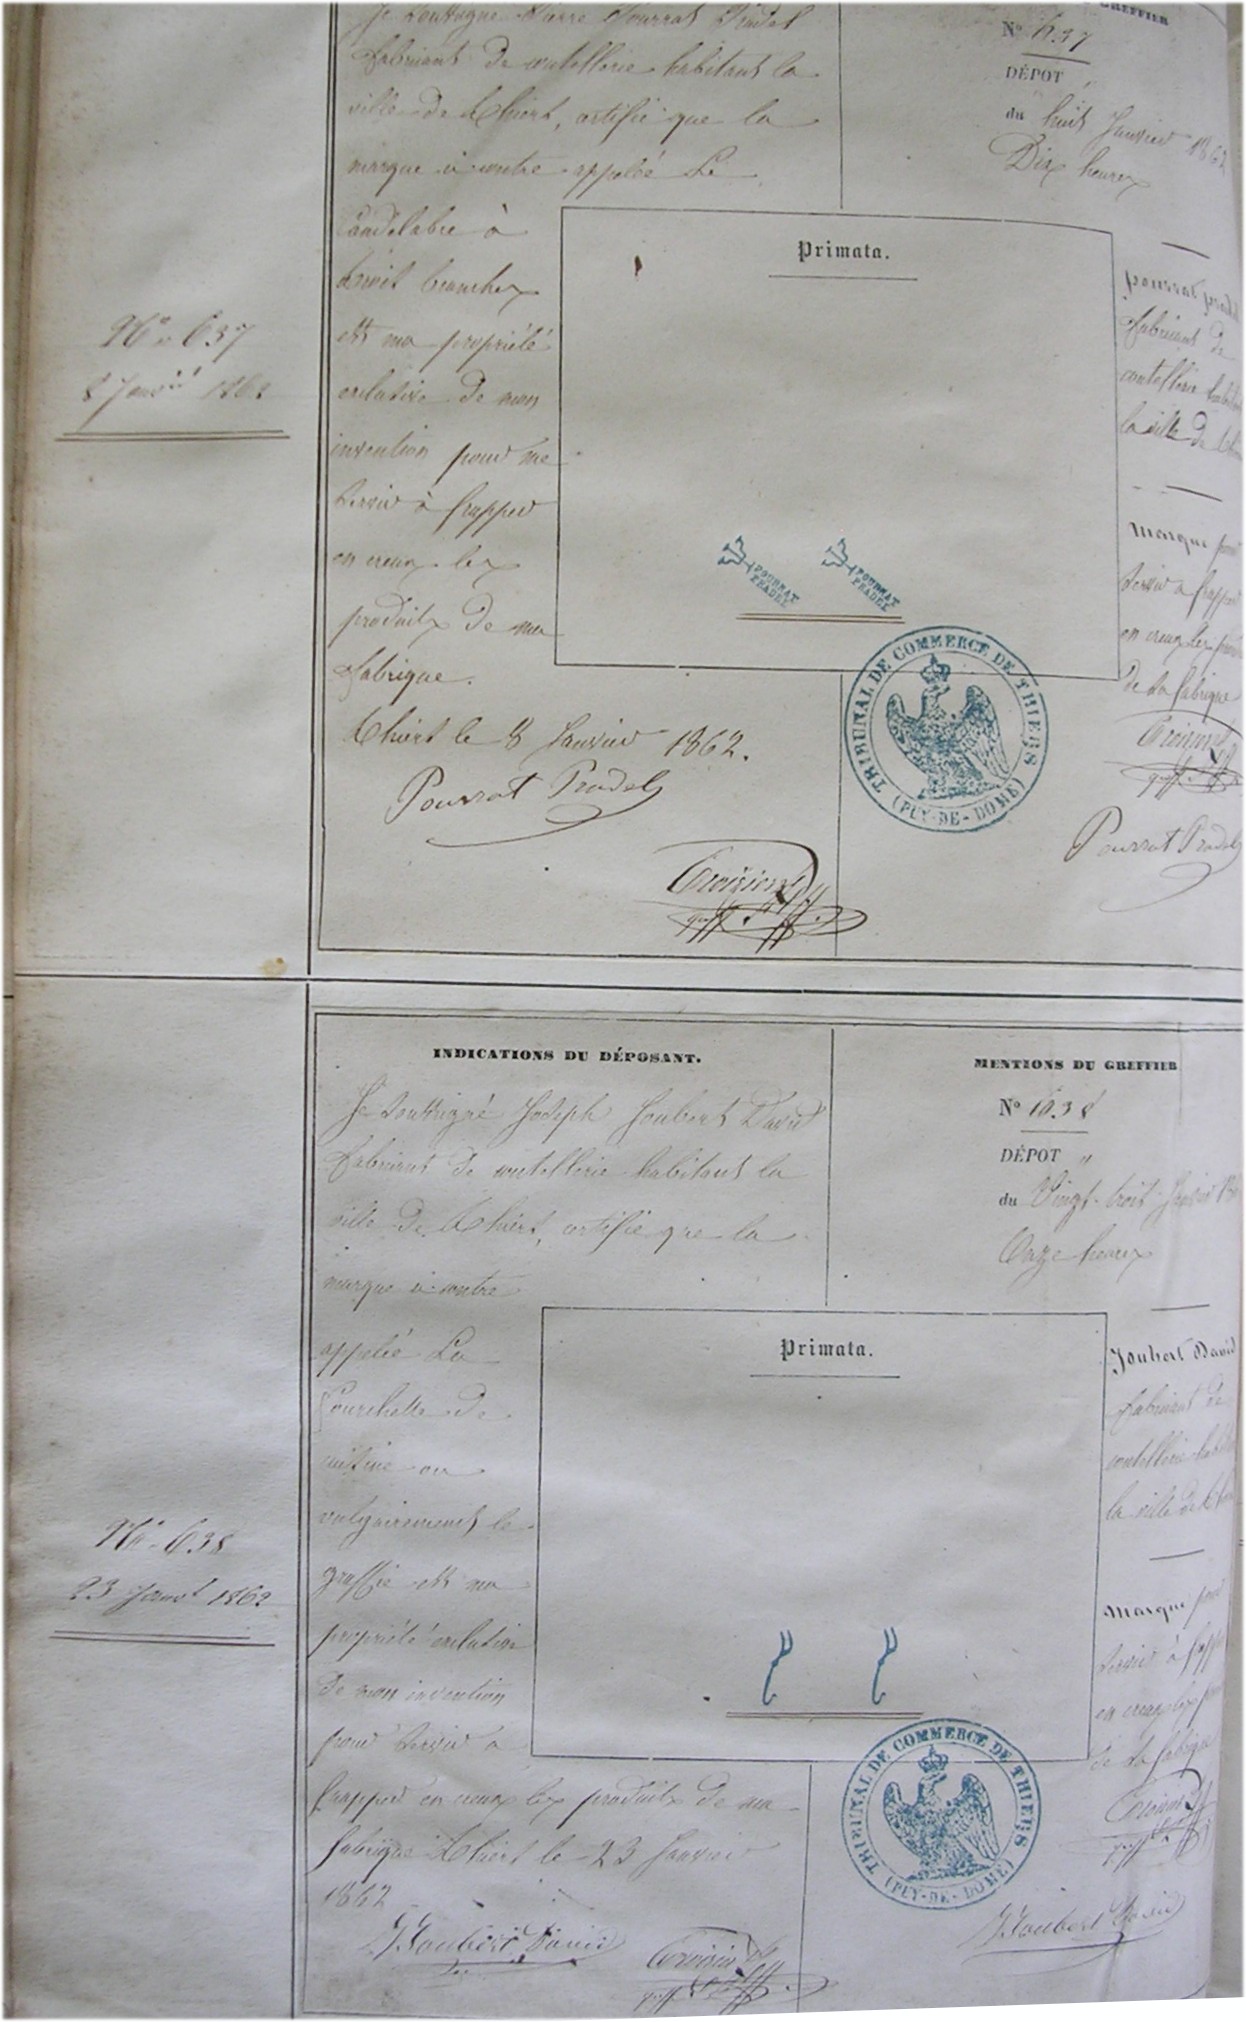 Je soussigné Pierre Pourrat Pradel
fabricant de coutellerie habitant la
ville de Thiers, certifie que la
marque ci contre appelée Le
Candelabre à
trois branches
est ma propriété
exclusive de mon
invention pour me
servir à frapper
en creux les
produits de ma
fabrique.
Thiers le 8 Janvier 1862.
Pourrat Pradel
No 637
8 Janvier 1862
GREFFIER
No 637
DÉPOT
du huit Janvier 1862
Dix heures
Primata.
POURRAT
PRADEL
POURRAT
PRADEL
TRIBUNAL DE COMMERCE DE THIERS
(PUY-DE-DOME)
pourrat
fabricant de
coutellerie
la ville de
marque
servir a frapper
en creux les
de sa fabrique
Pourrat Pradel
INDICATIONS DU DÉPOSANT.
Je soussigné Joseph Joubert David
fabricant de coutellerie habitant la
ville de Thiers, certifie que la
marque ci contre
appelée La
fourchette de
cuisine ou
vulgairement le
est ma
propriété exclusive
de mon invention
pour servir a
frapper en creux les produits de ma
fabrique Thiers le 23 Janvier
1862
J Joubert David
No 638
23 Janv 1862
MENTIONS DU GREFFIER
No 638
DÉPOT "
du Vingt-trois Janvier
Onze heures
Primata.
TRIBUNAL DE COMMERCE DE THIERS
(PUY-DE-DOME)
Joubert David
fabricant de
coutellerie
la ville de
marque pour
servir à
en creux les
de sa fabrique
J Joubert David